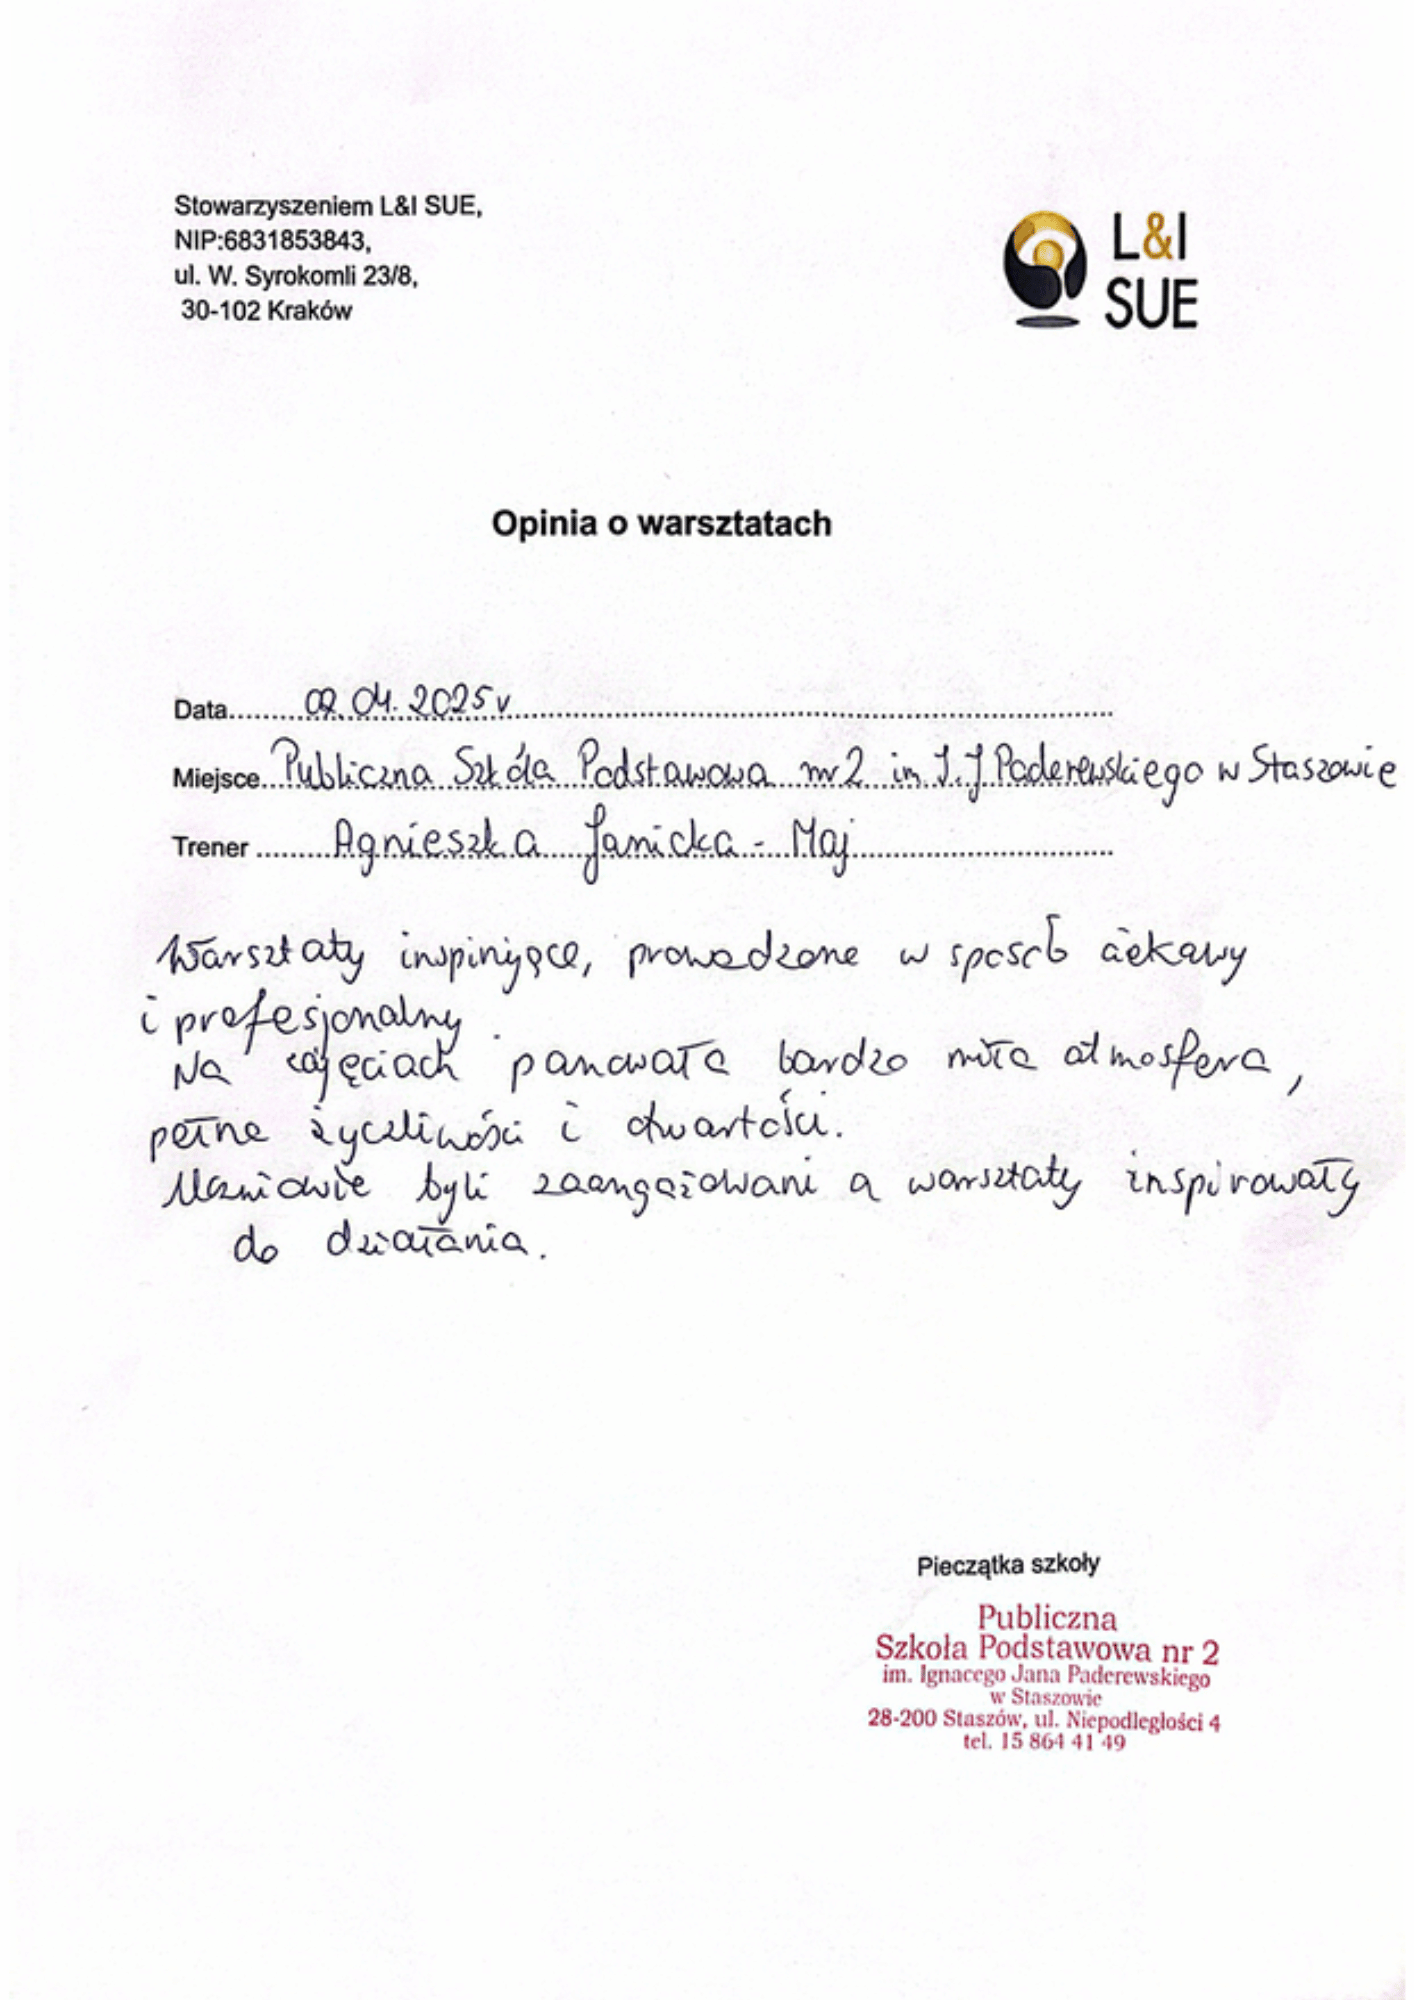 Stowarzyszeniem L&I SUE,
NIP:6831853843,
ul. W. Syrokomli 23/8,
30-102 Kraków
L&I
SUE
Opinia o warsztatach
Data 02.04.2025 r
Miejsce Publiczna Szkóla Podstawowa nr 2 im I.J Paderewskiego w Staszowie
Trener Agnieszka Janicka - Maj
Warsztaty inspirujące, prowadzone w sposób ciekawy
i profesjonalny.
Na zajęciach panowała bardzo miła atmosfera,
pełna życzliwości i otwartości.
Uczniowie byli zaangażowani a warsztaty inspirowały
do działania.
Pieczątka szkoły
Publiczna
Szkoła Podstawowa nr 2
im. Ignacego Jana Paderewskiego
w Staszowie
28-200 Staszów, ul. Niepodległości 4
tel. 15 864 41 49